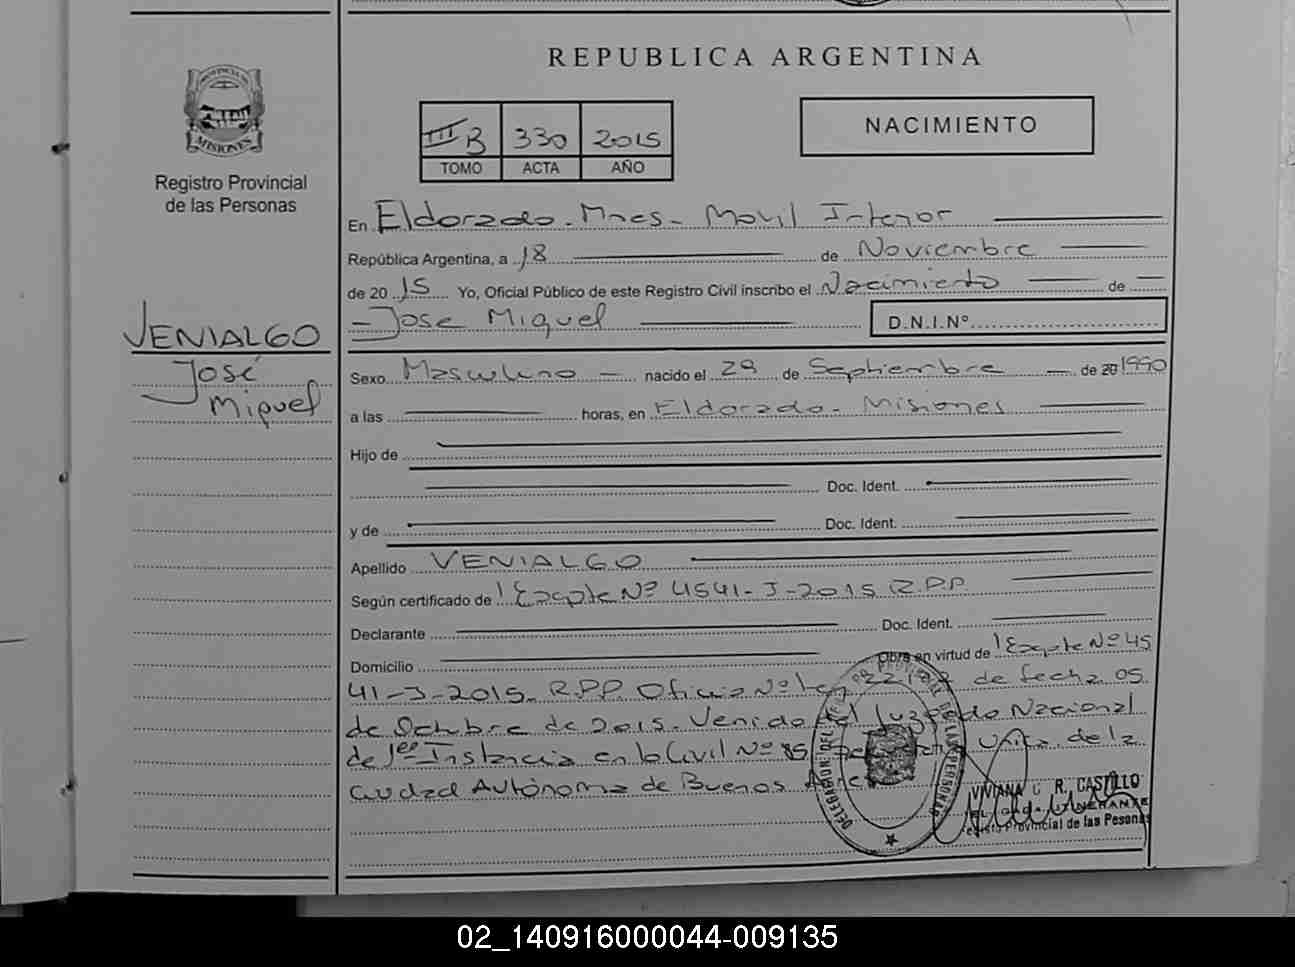 REPUBLICA ARGENTINA
PROVINCIA DE
MISIONES
Registro Provincial
de las Personas
III B 330 2015
TOMO ACTA AÑO
NACIMIENTO
VENIALGO
José
Miguel
En Eldorado - Mnes - Movil Interior
República Argentina, a 18 de Noviembre
de 2015 Yo, Oficial Público de este Registro Civil inscribo el Nacimiento de
Jose Miguel D.N.I.Nº
Sexo Masculino nacido el 29 de Septiembre de 20 1990
a las horas, en Eldorado - Misiones
Hijo de
Doc. Ident.
y de Doc. Ident.
Apellido VENIALGO
Según certificado de Expte Nº 4541-J-2015 R.P.P.
Declarante Doc. Ident.
Domicilio Obra en virtud de Expte Nº 45
41-J-2015. R.P.P. Oficio Nº de fecha 05
de Octubre de 2015. Venido del Juzgado Nacional
de 1era Instancia en lo Civil Nº 85 Unica de la
Ciudad Autónoma de Buenos Aires
VIVIANA R. CASTILLO
ITINERANTE
Registro Provincial de las Personas
02_140916000044-009135